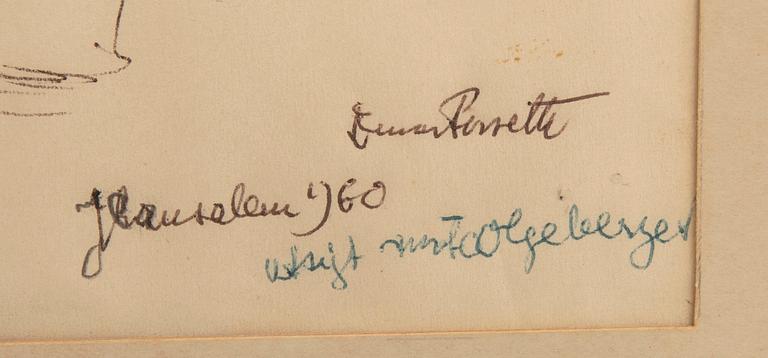 Einar Forseth
Jerusalem 1960
utsigt mot Oljeberget